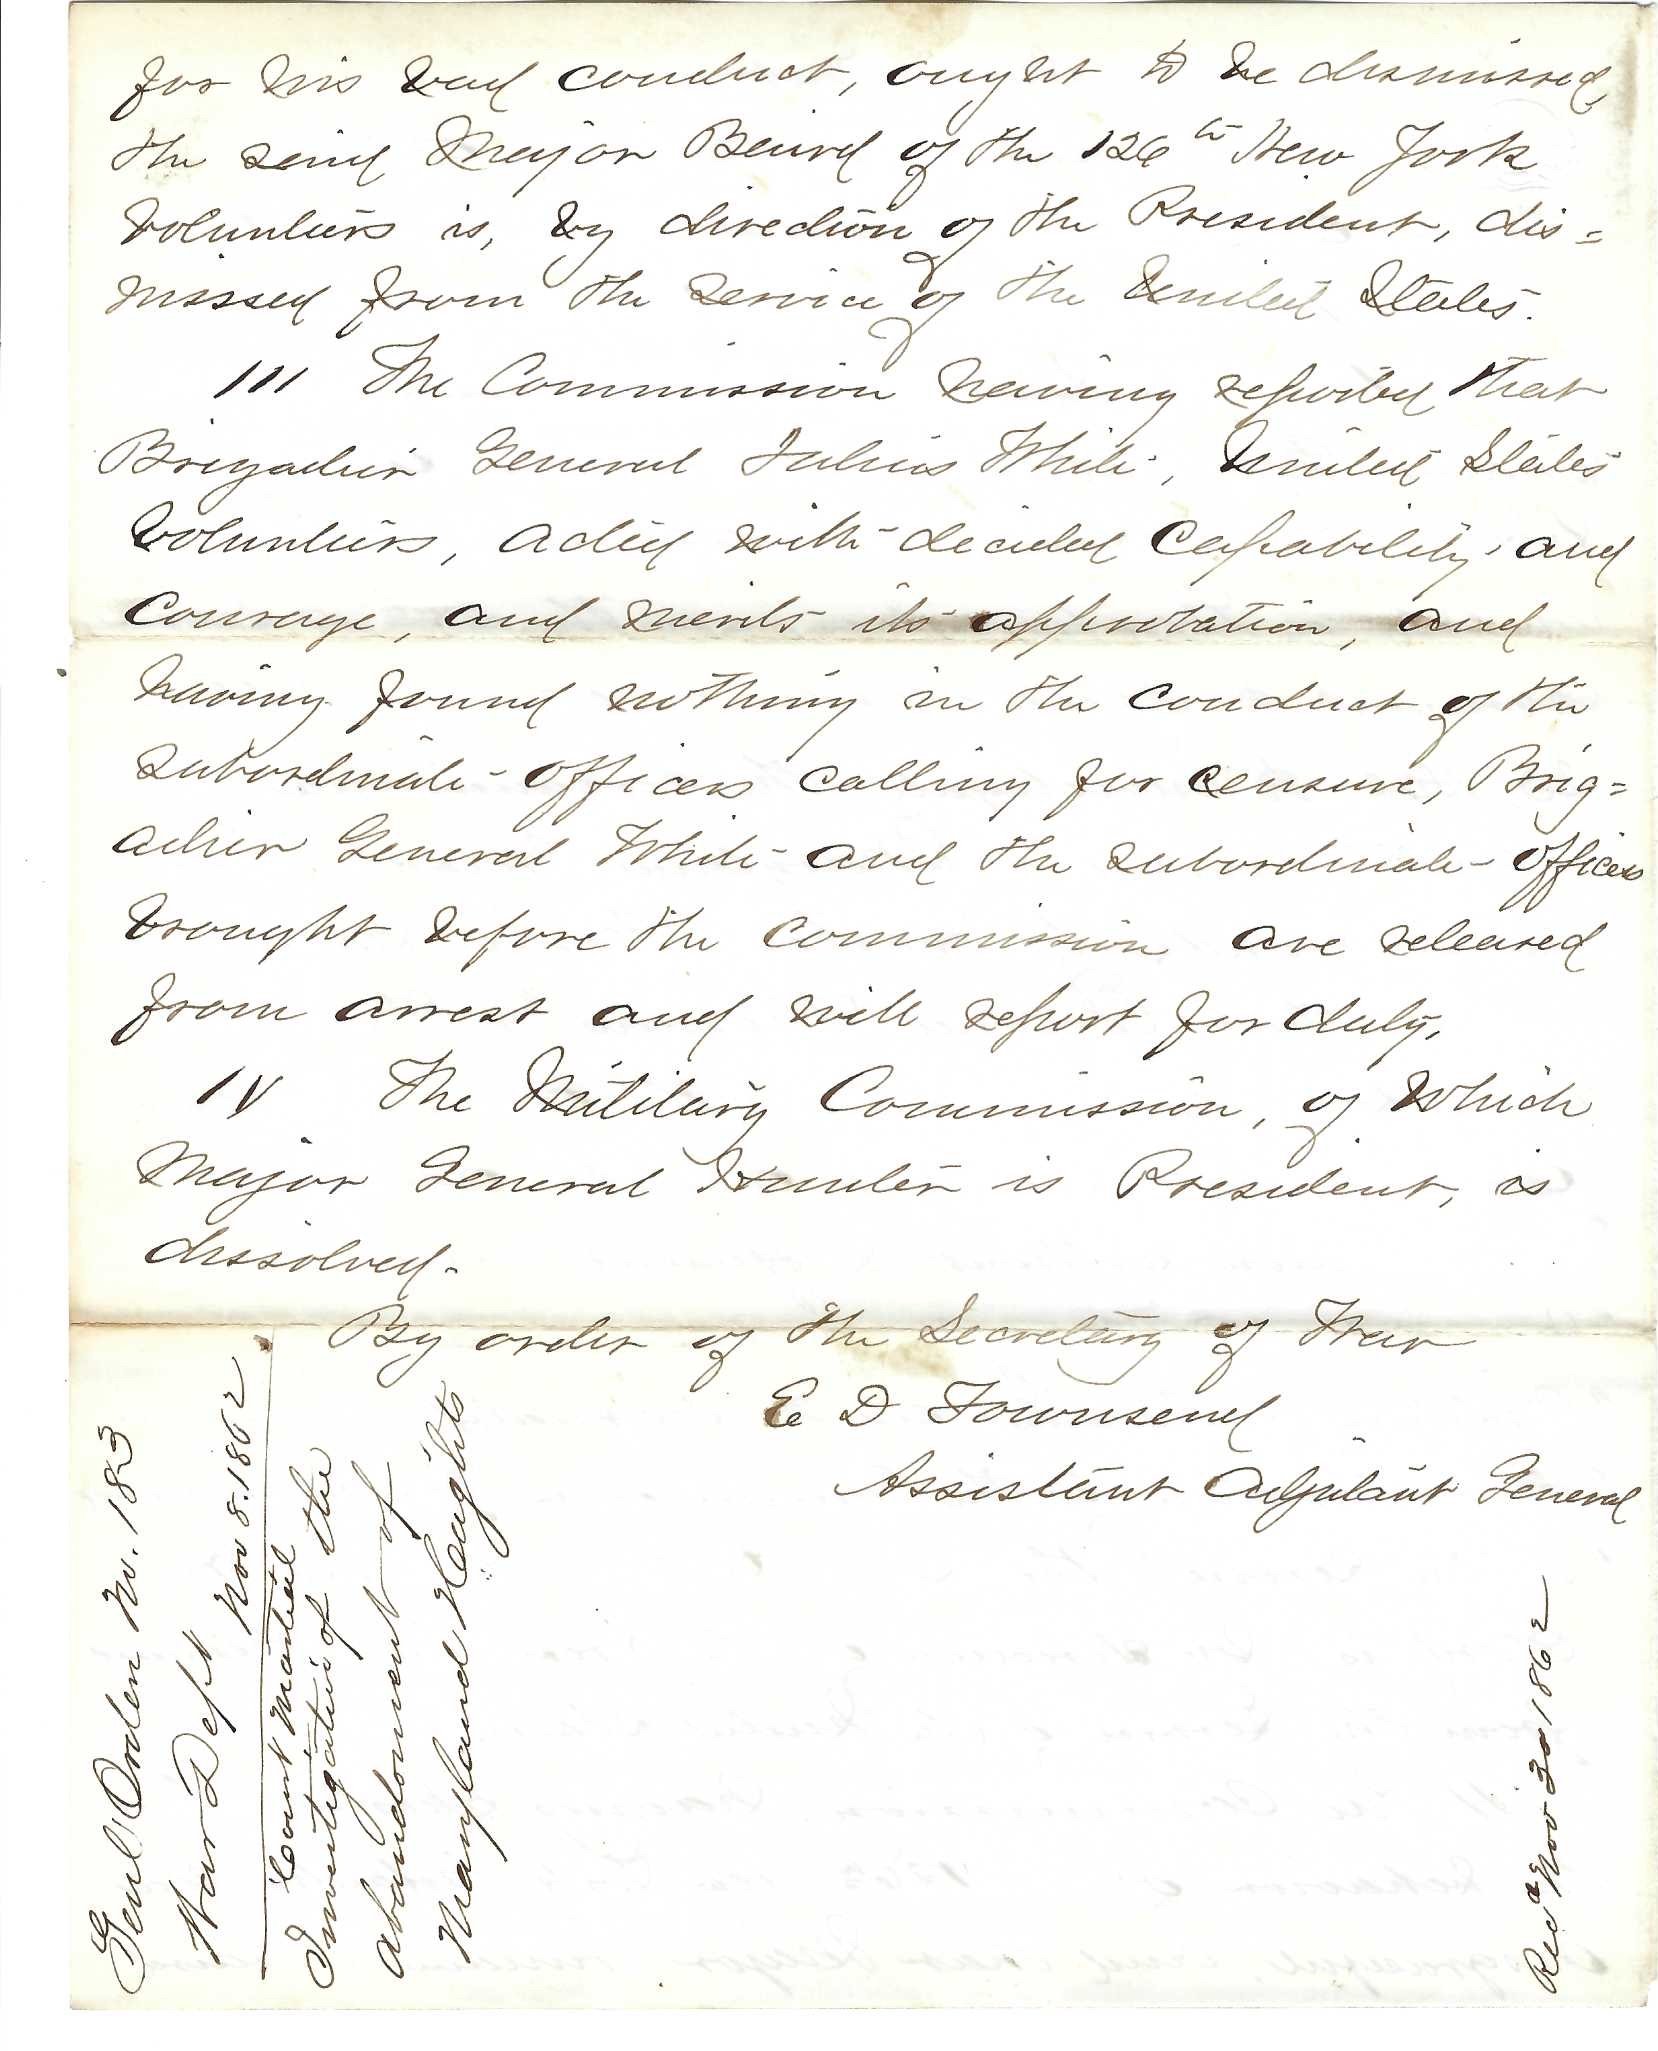 for his bad conduct, ought to be dismissed,
the said Major Baird of the 126th New York
Volunteers is, by direction of the President, dis=
missed from the service of the United States.
III The Commission having reported that
Brigadier General Julius White, United States
Volunteers, acted with decided capability and
Courage, and merits its approbation, and
having found nothing in the conduct of the
subordinate officers calling for censure, Brig=
adier General White and the subordinate officers
brought before the Commission are released
from arrest and will report for duty.
IV The Military Commission, of which
Major General Hunter is President, is
dissolved.
By order of the Secretary of War
E D Townsend
Assistant Adjutant General
Genl Orden No. 183
War Dept
Nov 8. 1862
Court Martial
Investigation of the
abandonment of
Maryland Heights
Recd Nov 30 1862